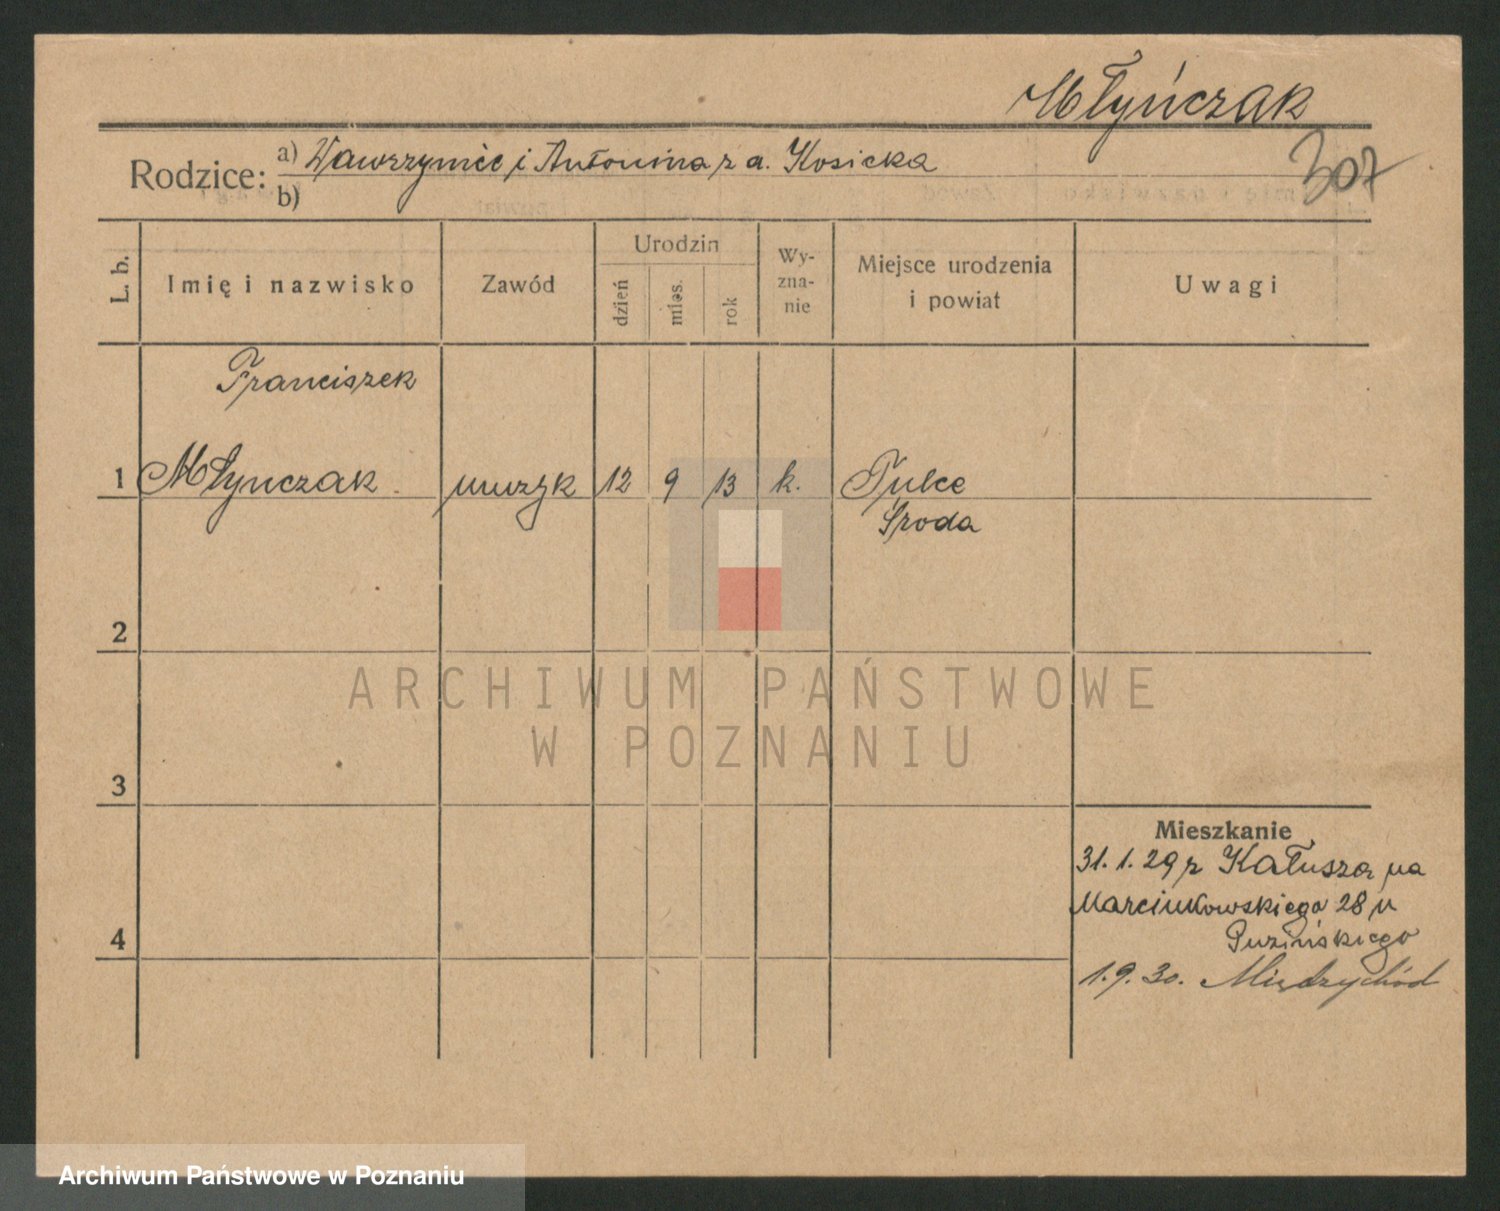 Młyńczak
307
Rodzice: a) Wawrzyniec i Antonina z d. Kosicka
b)
L. b.
Imię i nazwisko
Zawód
Urodzin
dzień
mies.
rok
Wy-
zna-
nie
Miejsce urodzenia
i powiat
Uwagi
Franciszek
1 Młynczak muzyk 12 9 13 k. Tulce
Środa
2
ARCHIWUM PAŃSTWOWE
W POZNANIU
3
Mieszkanie
31.1.29 z Kałusza na
Marcinkowskiego 28 u
Puzińskiego
4
1.9.30. Międzychód
Archiwum Państwowe w Poznaniu